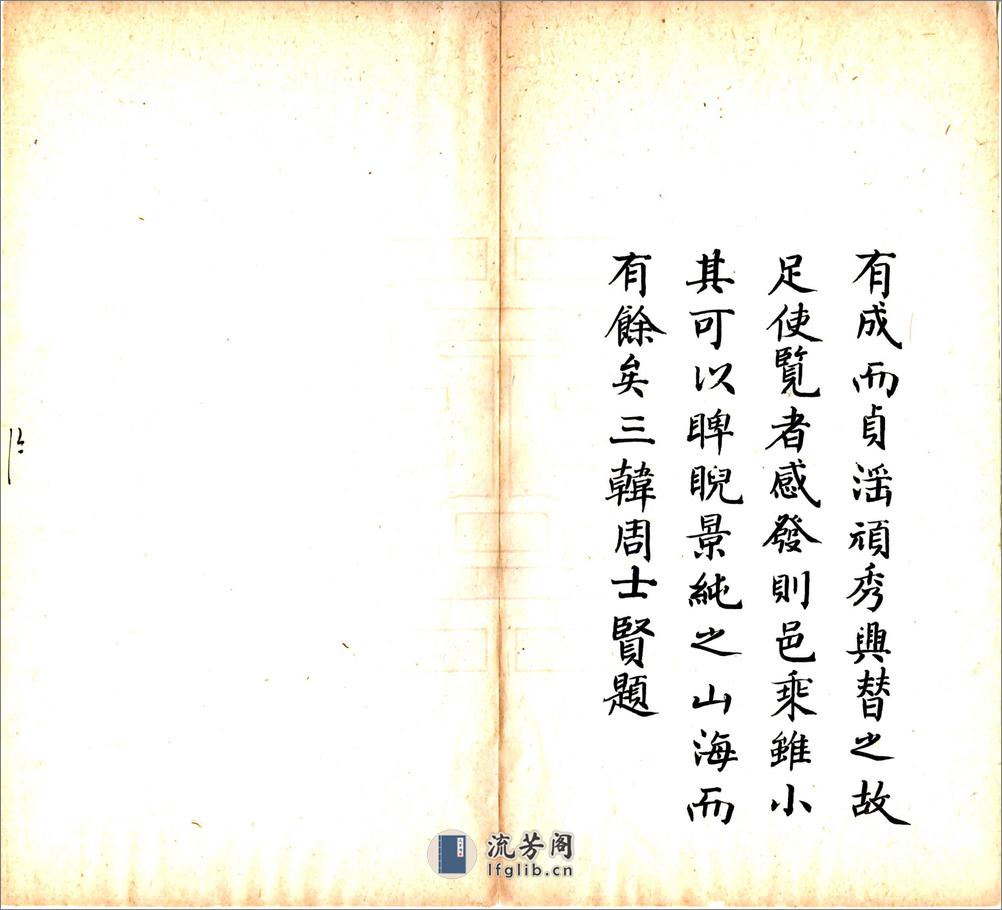 有成而貞滛頑秀興替之故
足使覧者感發則邑乘雖小
其可以睥睨景純之山海而
有餘矣三韓周士賢題
流芳阁
lfglib.cn